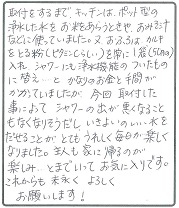 取付をするまで、キッチンは、ポット型の
浄水した水を お米をあらうときや、お みそ汁
などに使っていました。又 おふろは カルキ
をとる粉(ビタミンCらしい)を常に1袋(51cmα)
入れ シャワーにも 浄水機能の ついたもの
に替え… と かなりのお金と手間が
かかっていましたが 今回 取付した
事によって シャワーの出が悪くなることも
もなくなりそうだし、いきよいのいい 水を
だせることが とても うれしく 毎日が 楽しく
なりました。主人も 家に帰るのが
楽しみ…とまでいって お気に入りです。
これからも 末永く よろしく
お願いします!